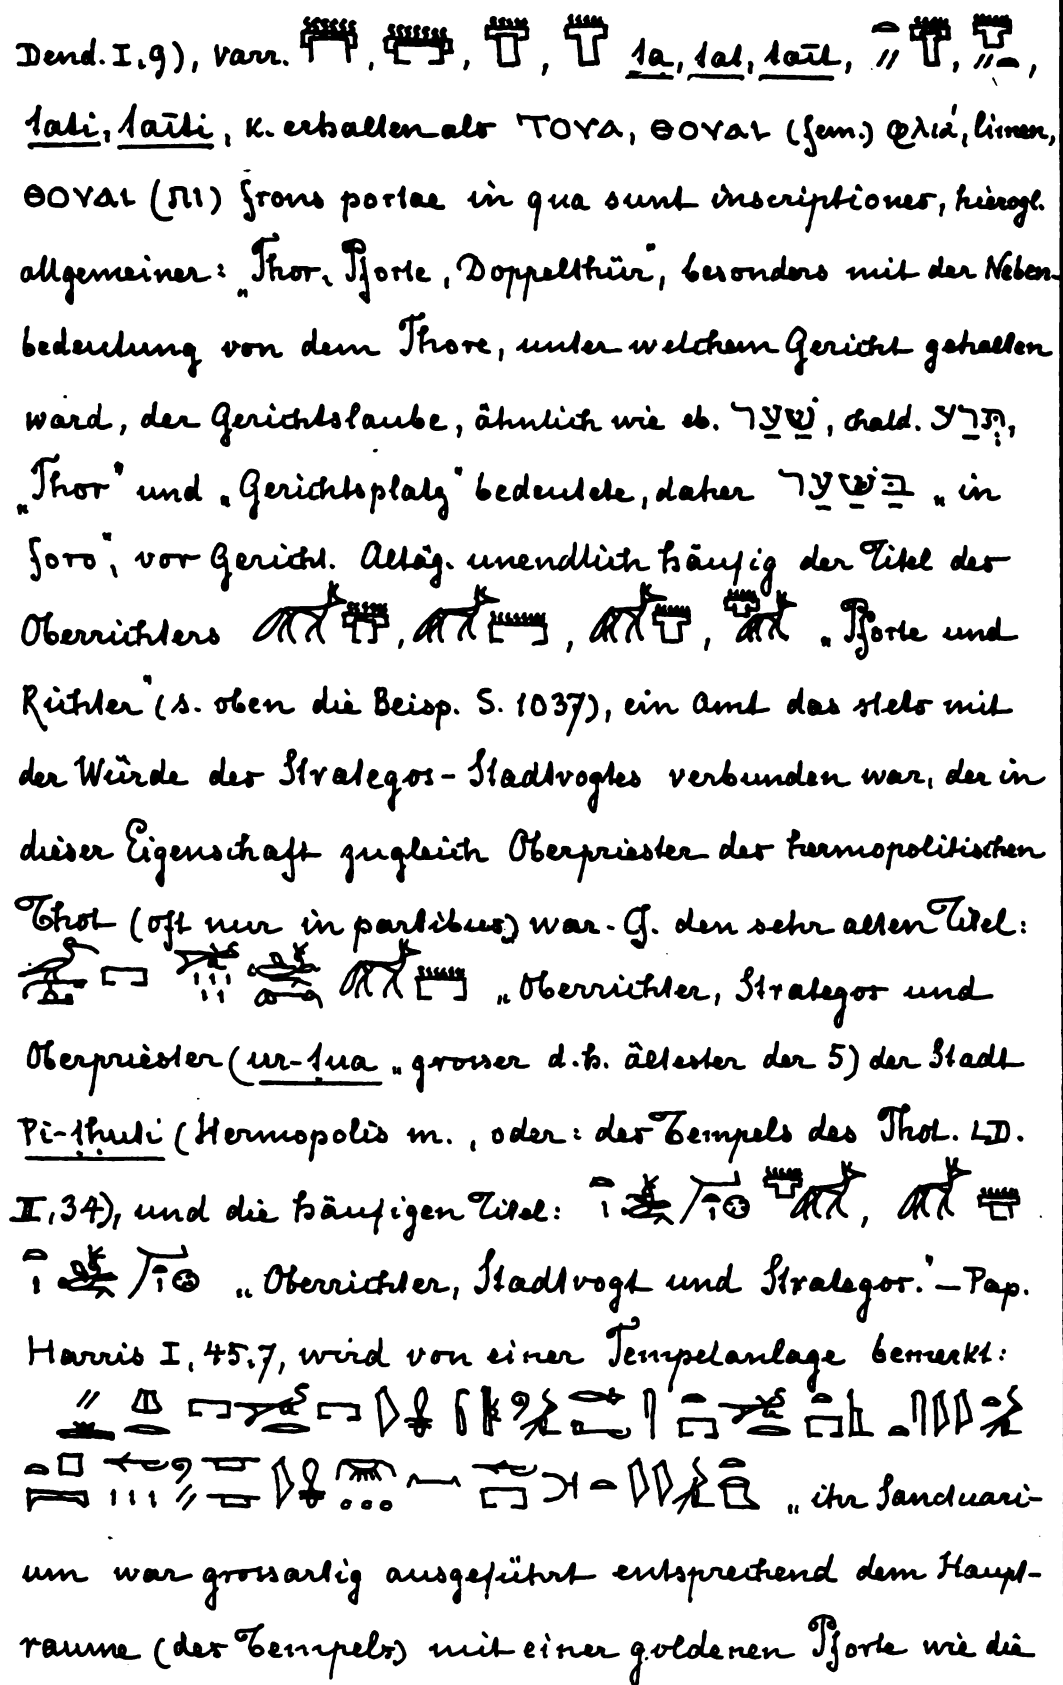 Dend. I, 9), varr. , , , ta, tat, taīt, , ,
tati, taīti, K. erhalten als ⲧⲟⲩⲁ, ⲑⲟⲩⲁⲓ (fem.) φλιά, limen,
ⲑⲟⲩⲁⲓ (ⲡⲓ) frons portae in qua sunt inscriptiones, hierogl.
allgemeiner: „Thor, Pforte, Doppelthür“, besonders mit der Neben-
bedeutung von dem Thore, unter welchem Gericht gehalten
ward, der Gerichtslaube, ähnlich wie eb. שַׁעַר, chald. תְּרַע,
„Thor“ und „Gerichtsplatz“ bedeutete, daher בַּשַּׁעַר „in
foro“, vor Gericht. Altäg. unendlich häufig der Titel des
Oberrichters , , , „Pforte und
Richter“ (s. oben die Beisp. S. 1037), ein Amt das stets mit
der Würde des Strategos-Stadtvogtes verbunden war, der in
dieser Eigenschaft zugleich Oberpriester des hermopolitischen
Thot (oft nur in partibus) war. Cf. den sehr alten Titel:
„Oberrichter, Strategos und
Oberpriester (ur-ṭua „grosser d.h. ältester der 5) der Stadt
Pi-ṭhuti (Hermopolis m., oder: des Tempels des Thot. L.D.
II, 34), und die häufigen Titel: ,
„Oberrichter, Stadtvogt und Strategos.“ – Pap.
Harris I, 45,7, wird von einer Tempelanlage bemerkt:
„ihr Sanctuari-
um war grossartig ausgeführt entsprechend dem Haupt-
raume (des Tempels) mit einer goldenen Pforte wie die